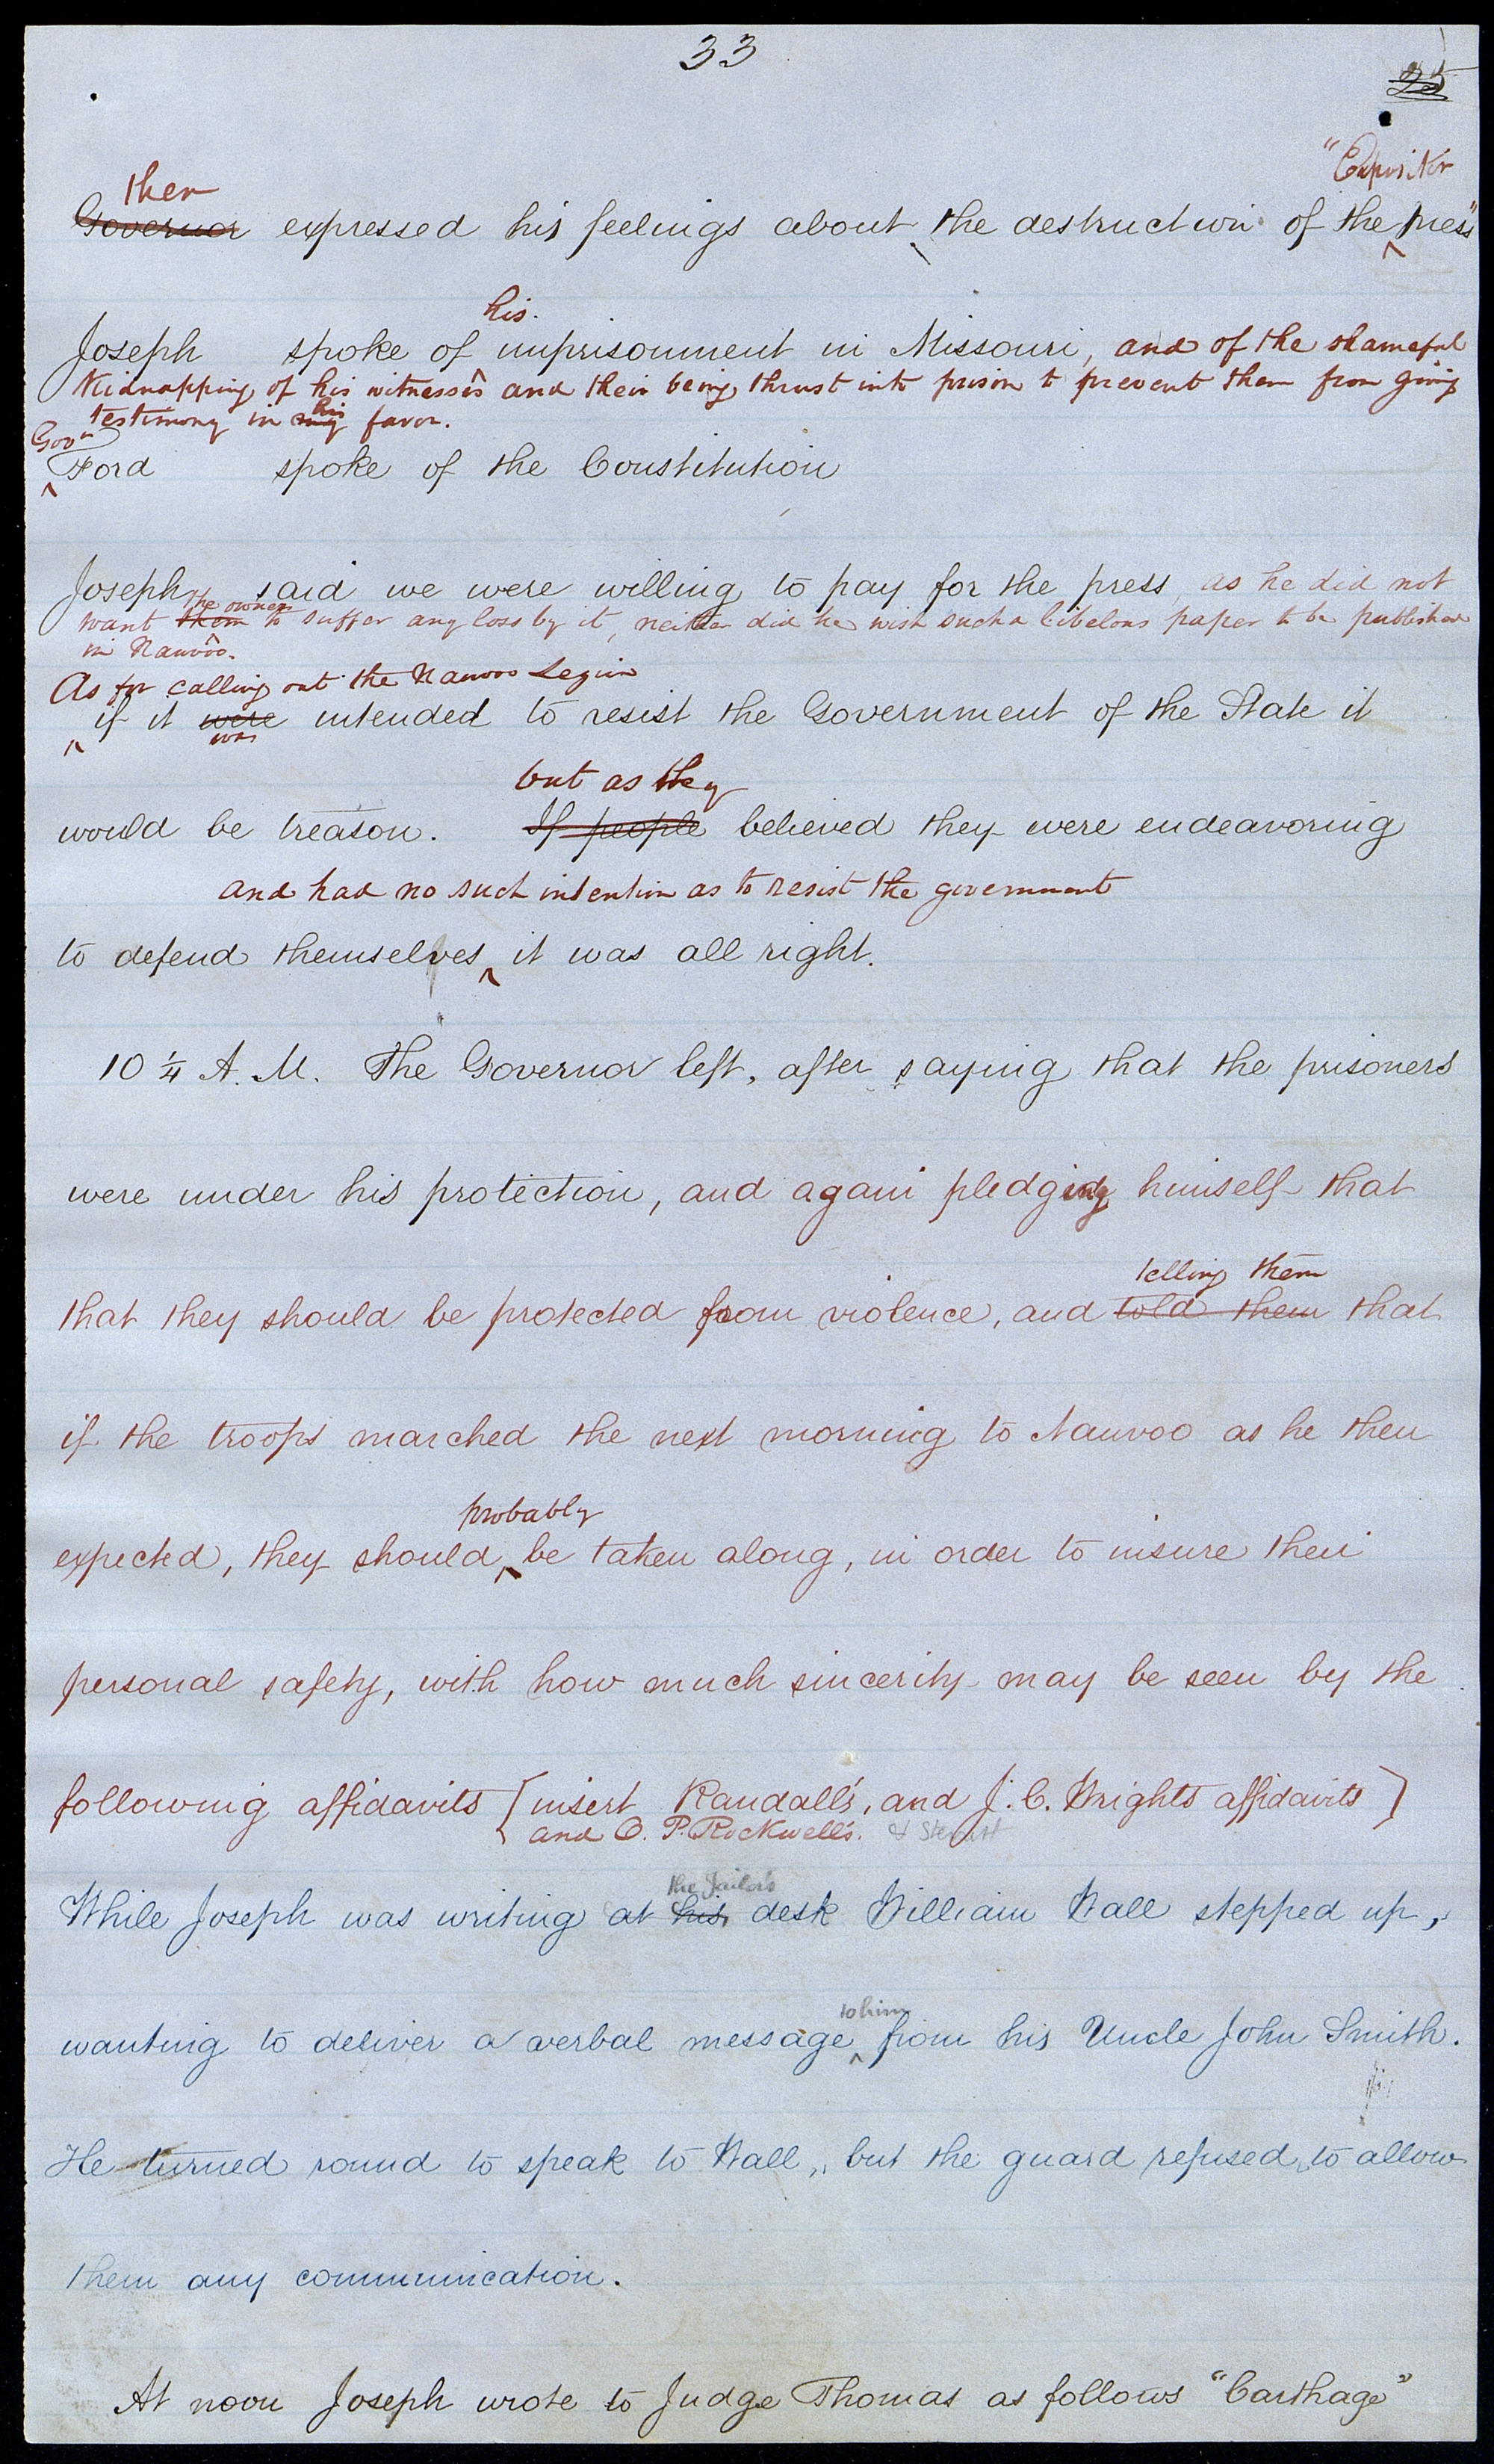 33
25
"Expositor
then
Governor expressed his feelings about the destruction of the press"
his
Joseph spoke of imprisonment in Missouri, and of the shameful
Kidnapping of his witnesses and their being thrust into prison to prevent them from giving
his
testimony in my favor.
Govr
Ford spoke of the Constitution
Joseph said we were willing to pay for the press, as he did not
the owners
want them to suffer any loss by it, neither did he wish such a libelous paper to be published
in Nauvoo.
As for calling out the Nauvoo Legion
if it were intended to resist the Government of the State it
was
but as they
would be treason. If people believed they were endeavoring
and had no such intention as to resist the government
to defend themselves it was all right.
10 1/4 A. M. The Governor left, after saying that the prisoners
were under his protection, and again pledging himself that
telling them
that they should be protected from violence, and told them that
if the troops marched the next morning to Nauvoo as he then
probably
expected, they should be taken along, in order to insure their
personal safety, with how much sincerity may be seen by the
following affidavits [insert Randall's, and J. C. Wrights affidavits]
and O. P. Rockwell's. & Stewart
the Jailor's
While Joseph was writing at his desk William Wall stepped up,
to him
wanting to deliver a verbal message from his Uncle John Smith.
He turned round to speak to Wall, but the guard refused to allow
them any communication.
At noon Joseph wrote to Judge Thomas as follows "Carthage"